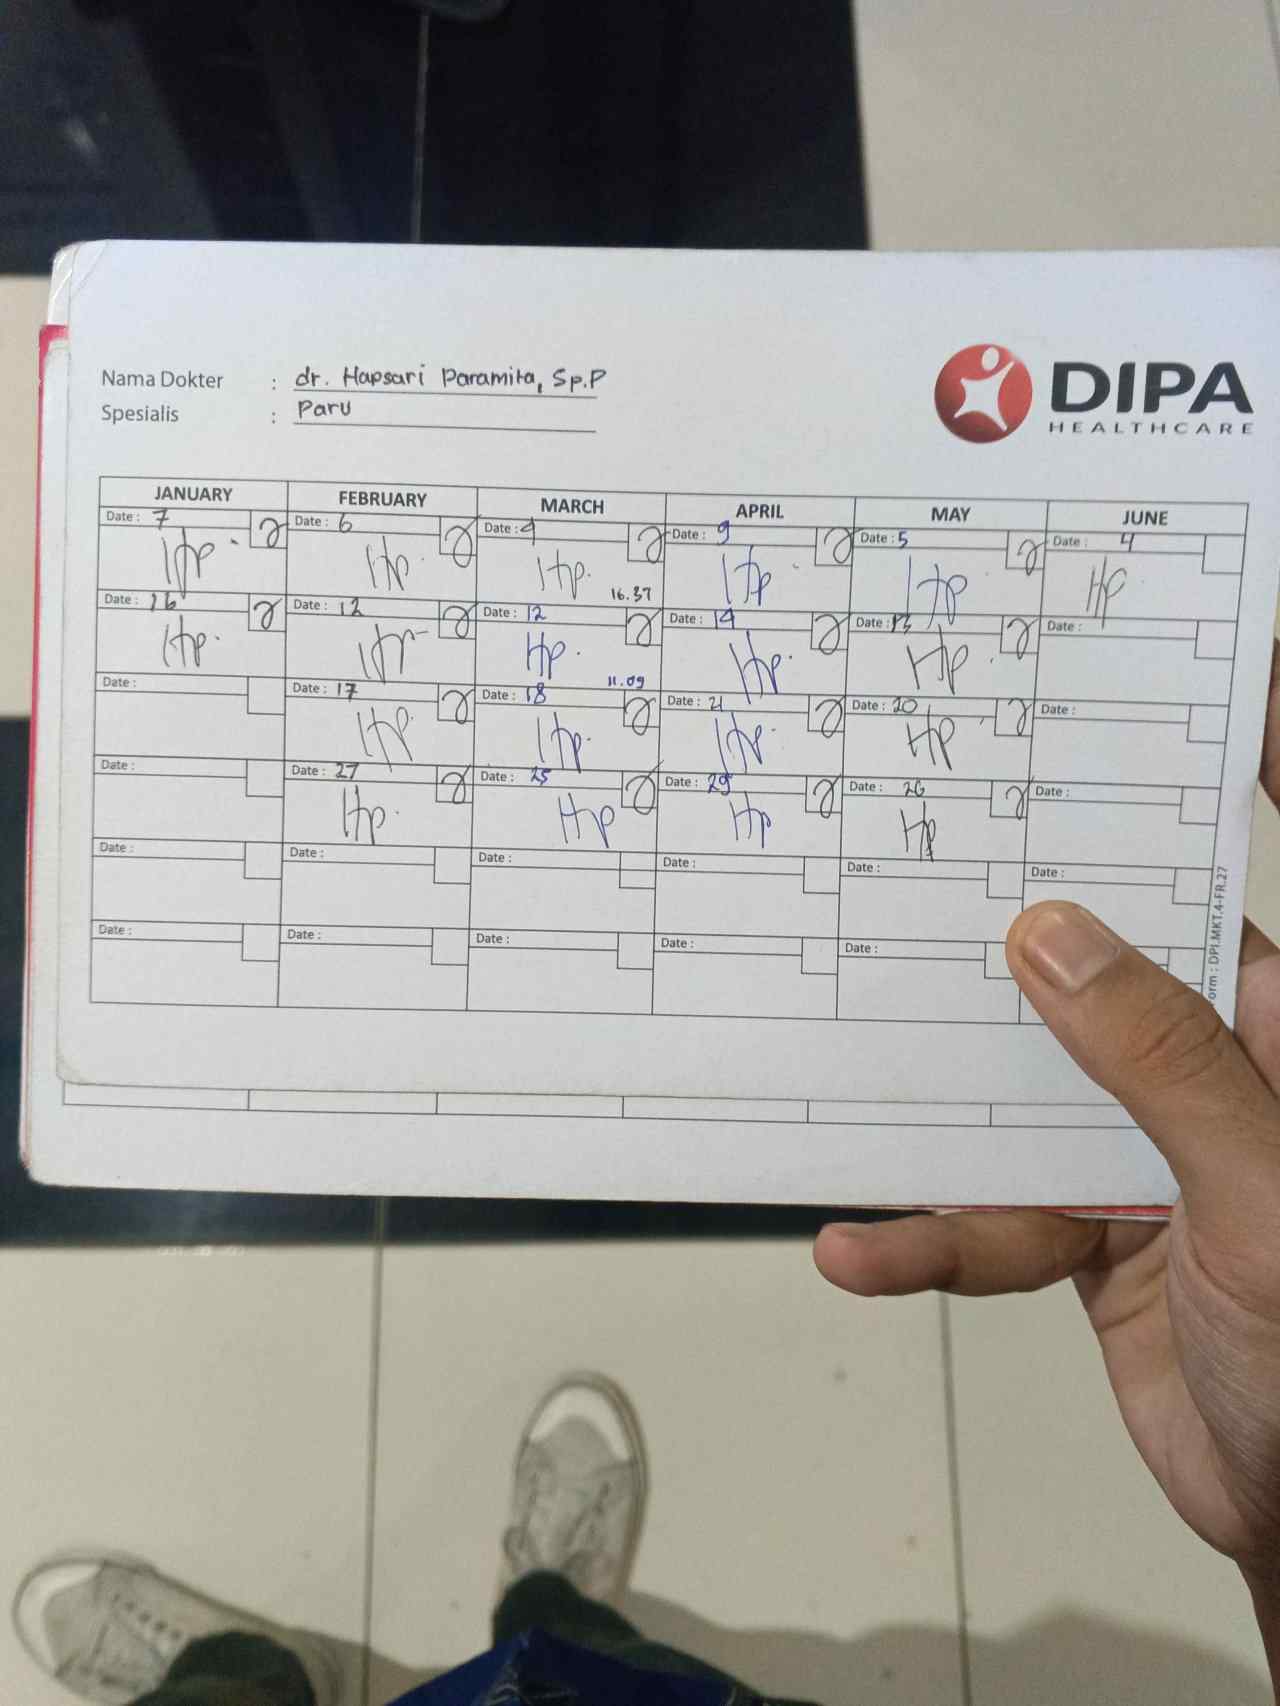 Nama Dokter : dr. Hapsari Paramita, Sp.P
Spesialis : Paru
DIPA
HEALTHCARE
JANUARY FEBRUARY MARCH APRIL MAY JUNE
Date : 7 Date : 6 Date : 4 Date : 9 Date : 5 Date : 4
Hp Hp Hp Hp Hp Hp
16.37
Date : 16 Date : 12 Date : 12 Date : 14 Date : 13 Date :
Hp Hp Hp Hp Hp
11.09
Date : Date : 17 Date : 18 Date : 21 Date : 20 Date :
Hp Hp Hp Hp
Date : Date : 27 Date : 25 Date : 29 Date : 26 Date :
Hp Hp Hp Hp
Date : Date : Date : Date : Date : Date :
Date : Date : Date : Date : Date :
orm : DPI.MKT.4-FR.27